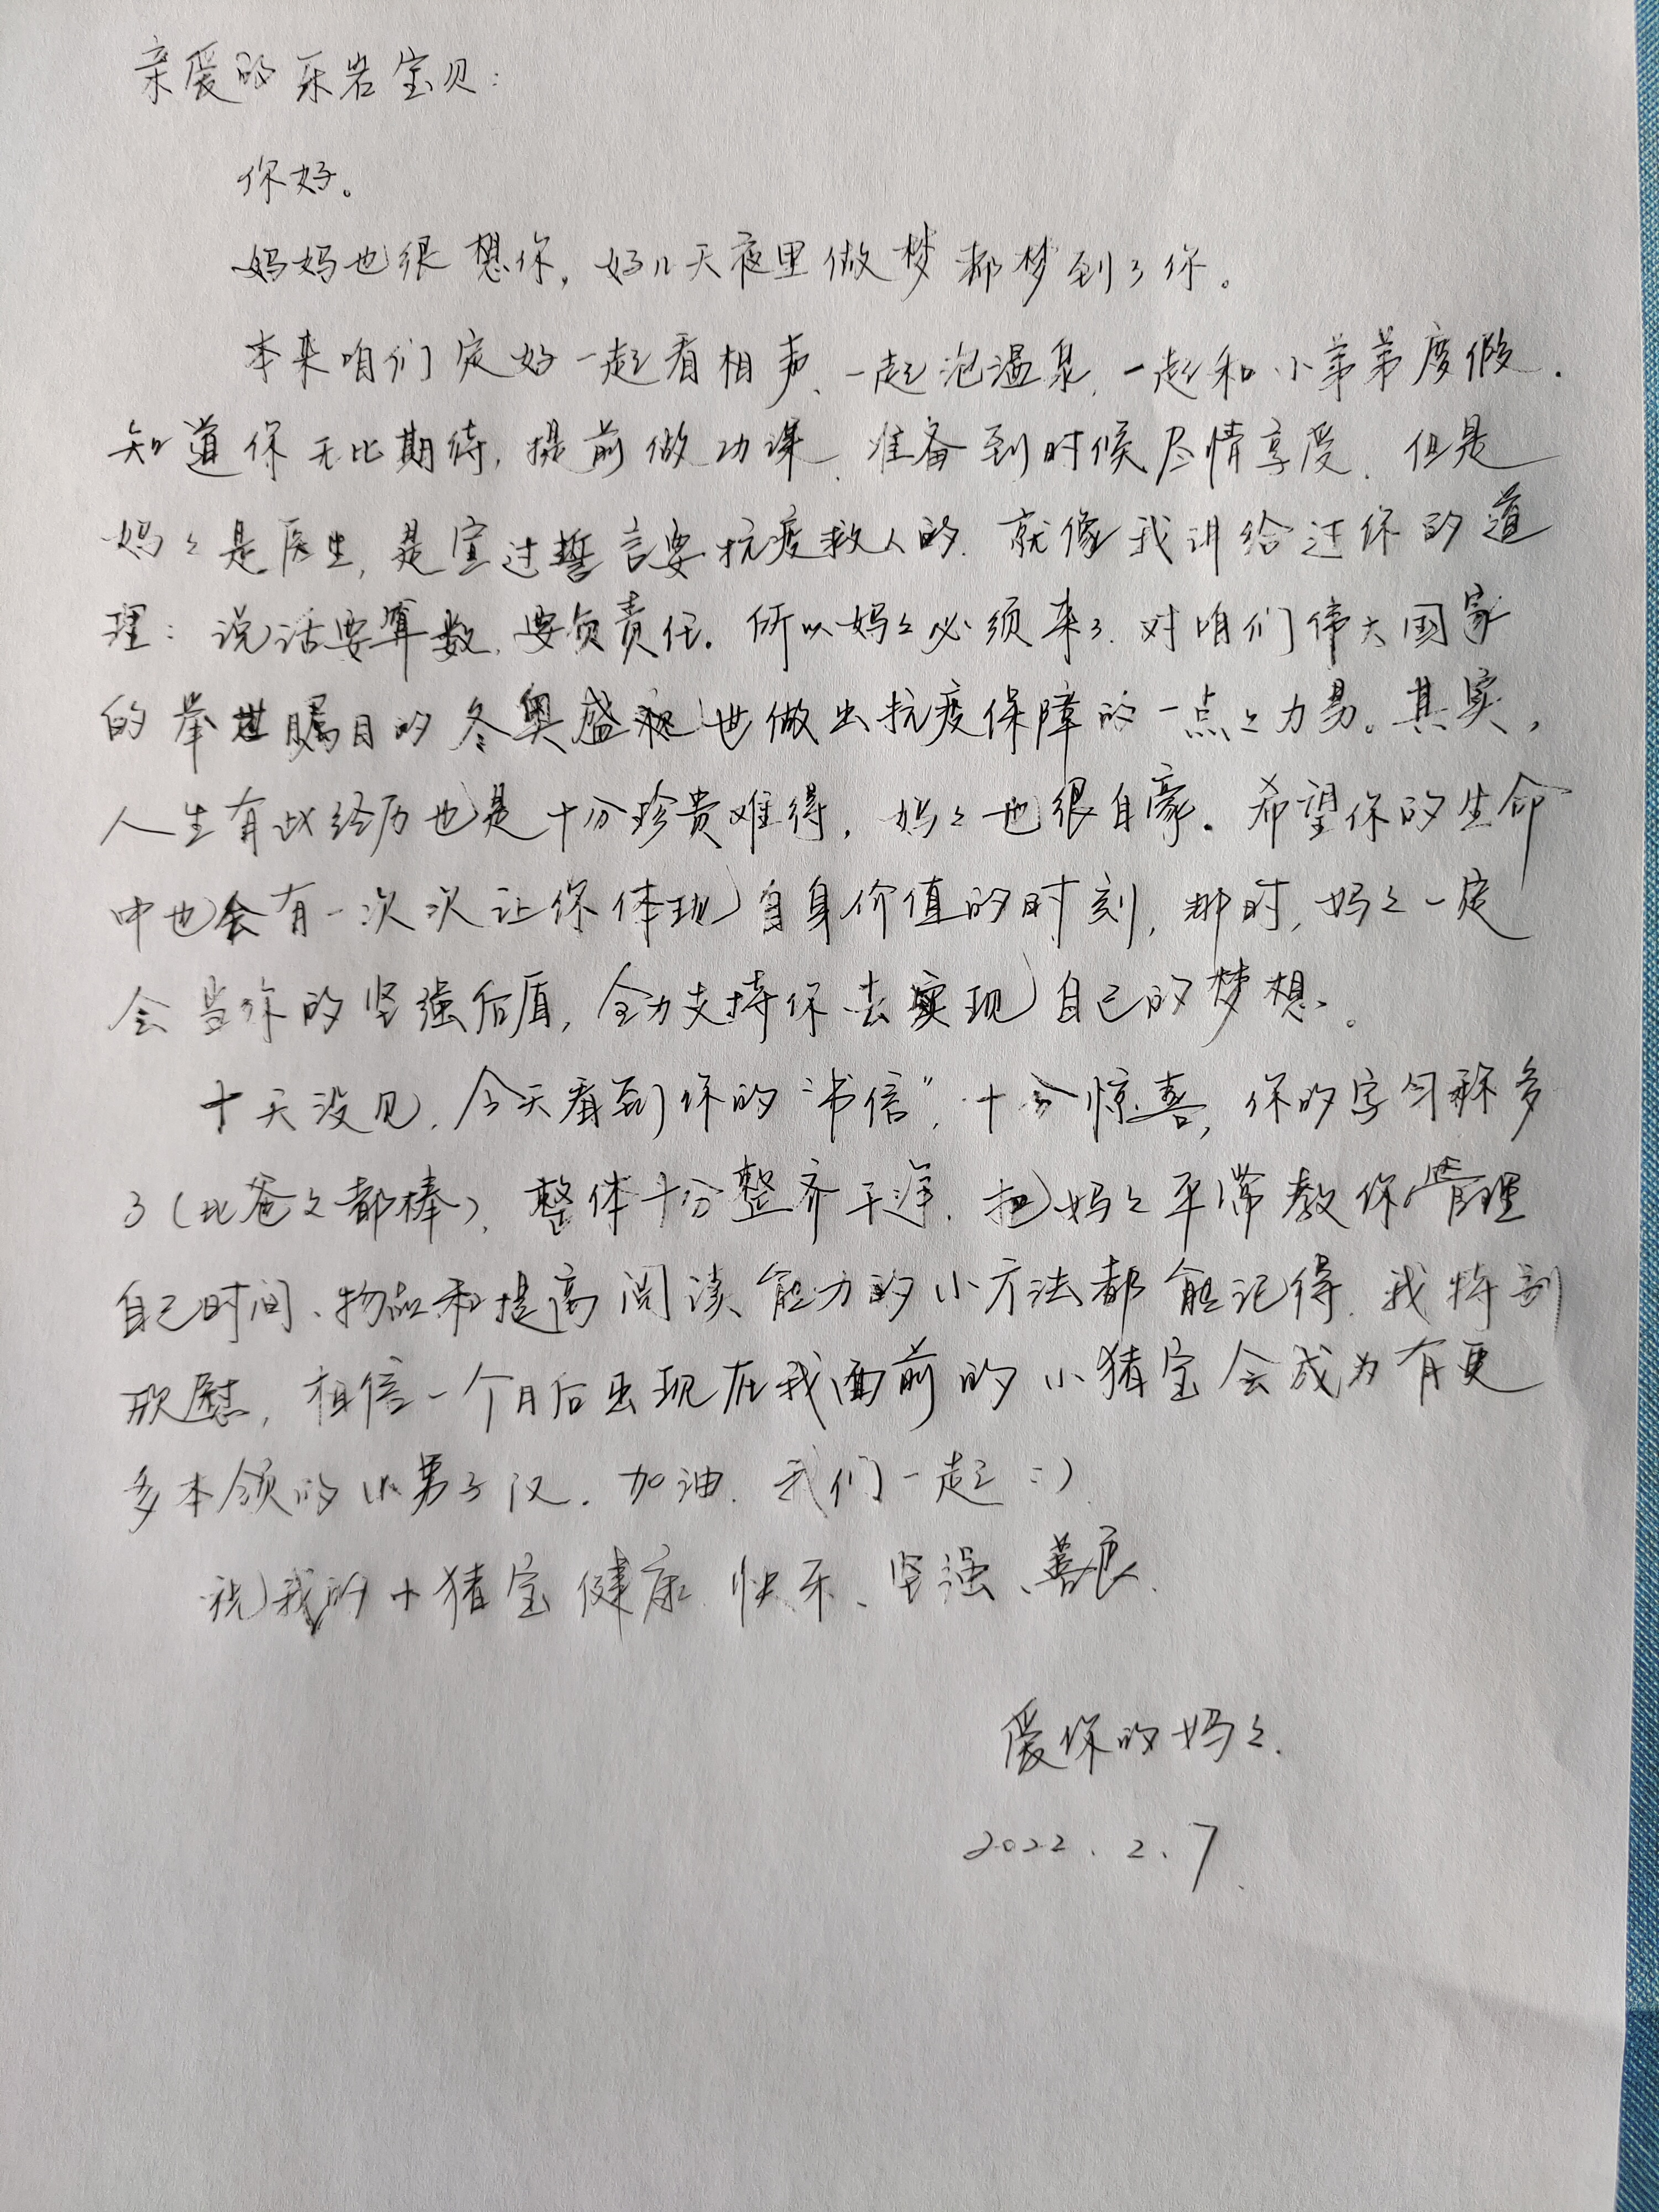 亲爱的乐岩宝贝：
你好。
妈妈也很想你，好几天夜里做梦都梦到了你。
本来咱们定好一起看相声、一起泡温泉，一起和小弟弟度假.
知道你无比期待，提前做功课，准备到时候尽情享受，但是
妈々是医生，是宣过誓言要抗疫救人的．就像我讲给过你的道
理：说话要算数，要负责任．所以妈々必须来了．对咱们伟大国家
的举世瞩目的冬奥盛况也做出抗疫保障的一点々力量。其实，
人生有此经历也是十分珍贵难得，妈々也很自豪．希望你的生命
中也会有一次次让你体现自身价值的时刻，那时，妈々一定
会当你的坚强后盾，全力支持你去实现自己的梦想。
十天没见，今天看到你的“书信”，十分惊喜，你的字匀称多
了（比爸々都棒），整体十分整齐干净．把妈々平常教你管理
自己时间、物品和提高阅读能力的小方法都能记得．我特别
欣慰，相信一个月后出现在我面前的小猪宝会成为有更
多本领的小男子汉．加油．我们一起：）
祝我的小猪宝健康、快乐、坚强、善良．
爱你的妈々．
2022．2．7．